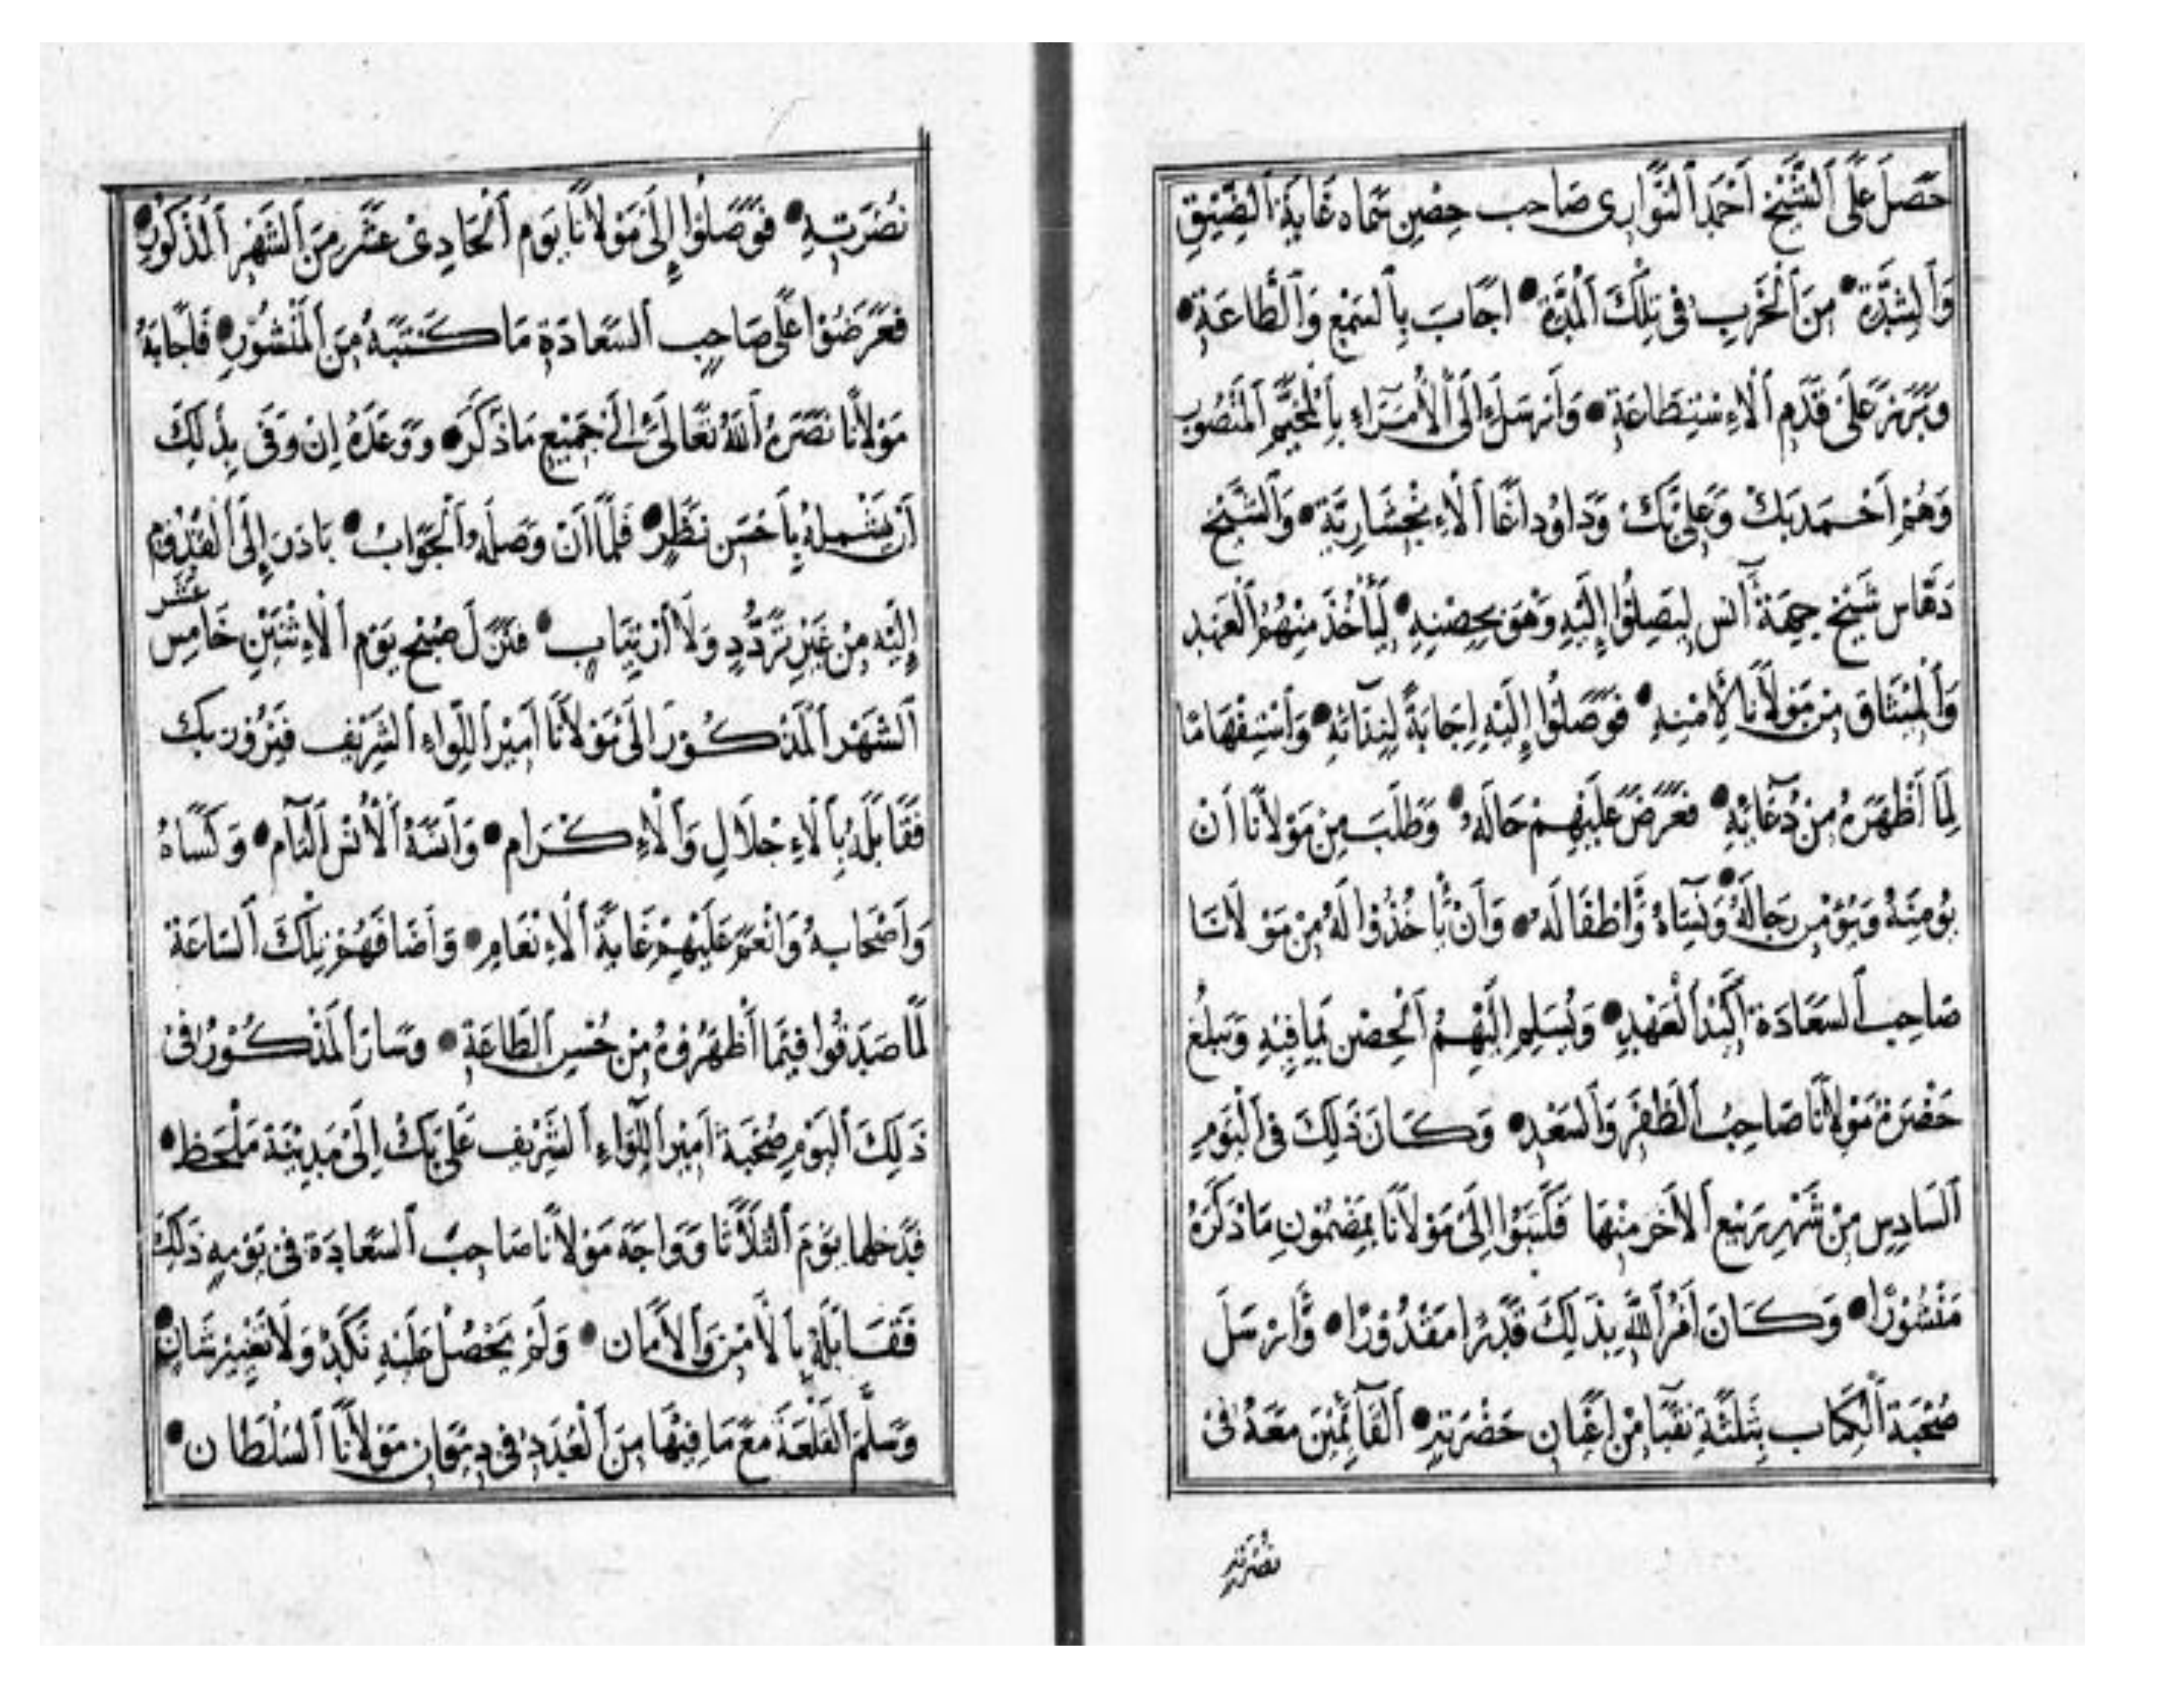 حَصَلَ عَلَى ٱلشَّيْخِ اَحْمَدَ ٱلنَّوَّارِى صَاحِب حِصْنِ حَمَاه غَايَةُ ٱلضِّيْقِ
وَٱلشِّدَّةِ • مِنَ ٱلْحَرْبِ فى تِلْكَ ٱلْمُدَّةِ • اَجَابَ بِٱلسَّمْعِ وَٱلطَّاعَةِ •
وَبَرَزَ عَلَى قَدَمِ ٱلاِسْتِطَاعَةِ • وَاَرْسَلَ اِلَى ٱلْاُمَرَاءِ بِٱلْمُخَيَّمِ ٱلْمَنْصُوبِ
وَهُمْ اَحْمَدبَكْ وَعَلِى بَكْ وَدَاوُد اَغَا ٱلاِنْجِشَارِيَّة • وَٱلشَّيْخ
دَهَّاس شَيْخ جِهَة آنس لِيَصِلُوا اِلَيْهِ وَهْوَ بِحِصْنِهِ • لِيَأْخُذَ مِنْهُمُ ٱلْعَهْد
وَٱلْمِيْثَاق مِنْ مَوْلَانَا لِأَمْنِهِ • فَوَصَلُوا اِلَيْهِ اِجَابَةً لِنِدَائِهِ • وَٱسْتِفْهَامًا
لِمَا اَظْهَرَهُ مِنْ دُعَائِهِ • فَعَرَضَ عَلَيْهِمْ حَالَهُ • وَطَلَبَ مِنْ مَوْلَانَا اَنْ
يُوْمِنَهُ وَيُؤْمِن رِجَالَهُ • وَنِسَاهُ وَاَطْفَالَهُ • وَاَنْ يَأْخُذُوْا لَهُ مِنْ مَوْلَانَا
صَاحِب ٱلسَّعَادَة اَكِيْدَ ٱلْعَهْدِ • وَيُسَلِم اِلَيْهِمُ ٱلْحِصْن بِمَا فِيْهِ وَيَبْلُغ
حَضْرَةَ مَوْلَانَا صَاحِبُ ٱلظَفَرِ وَٱلسَّعْدِ • وَكَانَ ذَلِكَ فِى ٱلْيَوْمِ
ٱلسَّادِسِ مِنْ شَهْرِ رَبِيْع ٱلاَخَر مِنْهَا فَكَتَبُوْا اِلَى مَوْلَانَا بِمَضْمُوْنِ مَا ذَكَرَهُ
مَنْشُوْرًا • وَكَانَ اَمْرُ ٱللهِ بِذَلِكَ قَدَرًا مَقْدُوْرًا • وَاَرْسَلَ
صُحْبَةَ ٱلْكِتَاب بِثَلَثَةِ نُقَبَا مِنْ اَعْيَانِ حَضْرَتِهِ • ٱلْقَائِمِيْنَ مَعَهُ فى
نُصْرَتِهِ
نُصْرَتِهِ • فَوَصَلُوْا اِلَى مَوْلَانَا يَوْم ٱلْحَادِىْ عَشَر مِنَ ٱلشَّهْرِ ٱلْمَذْكُوْرِ •
فَعَرَضُوْا عَلَى صَاحِبِ ٱلسَّعَادَةِ مَا كَتَبَهُ مِنَ ٱلْمَنْشُوْرِ • فَاَجَابَهُ
مَوْلَانَا نَصَرَهُ ٱللهُ تَعَالَى اِلَى جَمِيْعِ مَا ذَكَرَه • وَوَعَدَهُ اِنْ وَفَى بِذَلِكَ
اَنْ يَشْمِلهُ بِاَحْسَن نَظَرٍ • فَلَمَّا اَنْ وَصَلَهُ ٱلْجَوَابُ • بَادَرَ اِلَى ٱلْقُدُوْمِ
اِلَيْهِ مِنْ غَيْرِ تَرَدُّدٍ وَلَا اَرْتِيَابٍ • فَنَزَلَ صُبْح يَوْم ٱلْاِثْنَيْنِ خَامِس عَشَر
ٱلشَّهْر ٱلْمَذْكُوْرَ اِلَى مَوْلَانَا اَمِيْرِ ٱللِّوَاءِ ٱلشَّرِيْف فَيْرُوْز بَك
فَقَابَلَهُ بِٱلْاِجْلَالِ وَٱلْاِكْرَام • وَآنَسَهُ ٱلْأُنْسَ ٱلتَآم • وَكَسَاهُ
وَاَصْحَابهُ وَاَنْعَمَ عَلَيْهِمْ غَايَةَ ٱلْاِنْعَامِ • وَاَضَافَهُمْ تِلْكَ ٱلسَّاعَة
لَمَّا صَدَقُوا فِيْمَا اَظْهَرُوْهُ مِنْ حُسْنِ ٱلطَّاعَةِ • وَسَارَ ٱلْمَذْكُوْرُ فى
ذَلِكَ ٱلْيَوْمِ صُحْبَةَ اَمِيْرِ ٱللِّوَاءِ ٱلشَّرِيْف عَلِى بَكْ اِلَى مَدِيْنَة مَلْحَظ •
فَدَخلها يَوْمَ ٱلثَّلَاثَا وَوَاجَهَ مَوْلَانَا صَاحِبَ ٱلسَّعَادَة فى يَوْمِهِ ذَلِكَ
فَقَابَلَهُ بِٱلْأَمْنِ وَٱلأَمَان • وَلَمْ يَحْصُلْ عَلَيْهِ نَكَدٌ وَلَا تَغْيِيْر شَانٍ •
وَسَلَّمَ ٱلْقَلْعَةَ مَعَ مَا فِيْهَا مِنَ ٱلْعُدَدِ فى دِيْوَانِ مَوْلَانَا ٱلسُّلْطَان •